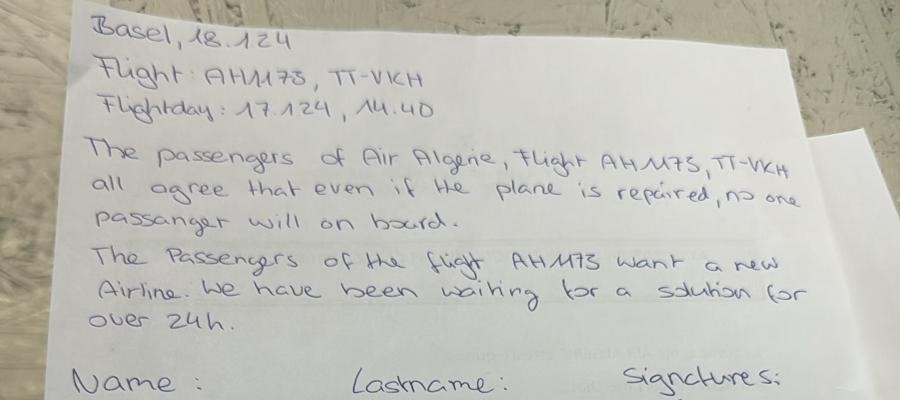 Basel, 18.124
Flight: AH1173, TT-VKH
Flightday: 17.124, 14.40
The passengers of Air Algerie, Flight AH1173, TT-VKH
all agree that even if the plane is repaired, no one
passanger will on board.
The Passengers of the flight AH1173 want a new
Airline. We have been waiting for a solution for
over 24h.
Name: Lastname: Signctures: